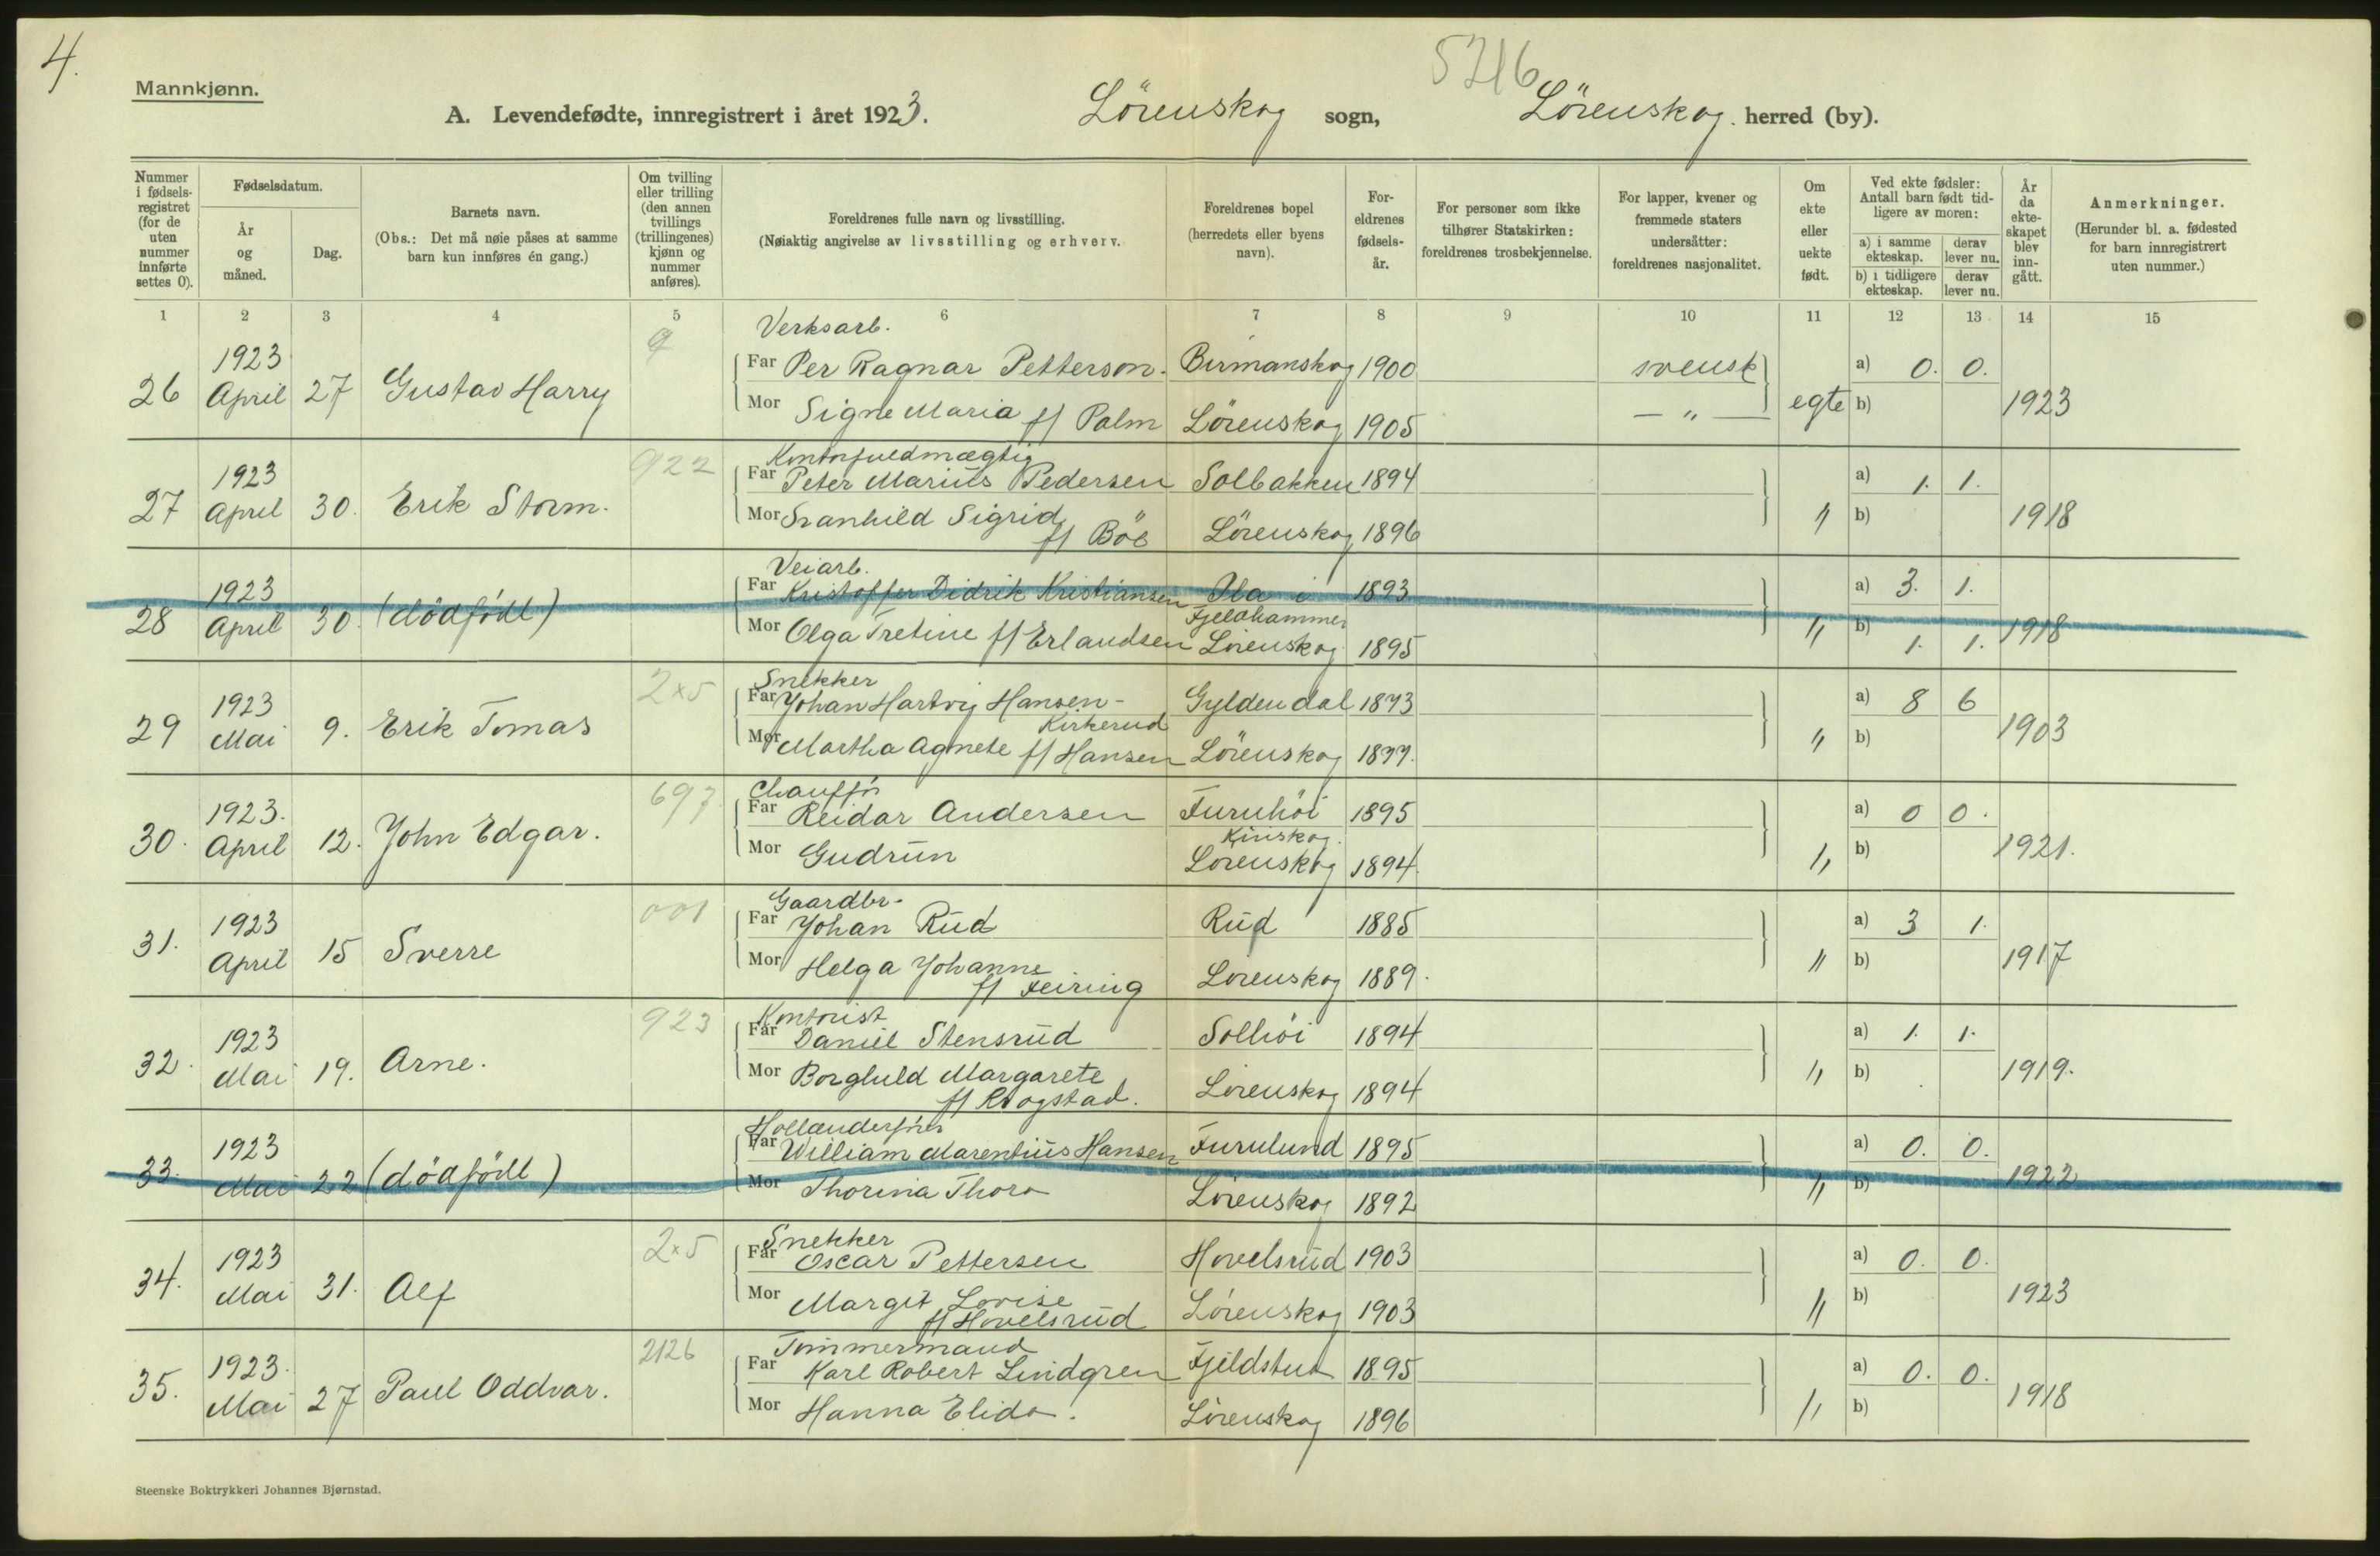 4.
5216
Mannkjønn.
A. Levendefødte, innregistrert i året 1923. Lörenskog sogn, Lörenskog herred (by).
Nummer i fødsels-registret (for de uten nummer innførte settes 0).
Fødselsdatum.
År og måned.
Dag.
Barnets navn.
(Obs.: Det må nøie påses at samme barn kun innføres én gang.)
Om tvilling eller trilling (den annen tvillings (trillingenes) kjønn og nummer anføres).
Foreldrenes fulle navn og livsstilling.
(Nøiaktig angivelse av livsstilling og erhverv.
Foreldrenes bopel (herredets eller byens navn).
For-eldrenes fødsels-år.
For personer som ikke tilhører Statskirken: foreldrenes trosbekjennelse.
For lapper, kvener og fremmede staters undersåtter: foreldrenes nasjonalitet.
Om ekte eller uekte født.
Ved ekte fødsler: Antall barn født tid-ligere av moren:
a) i samme ekteskap.
derav lever nu.
b) i tidligere ekteskap.
derav lever nu.
År da ekte-skapet blev inn-gått.
Anmerkninger.
(Herunder bl. a. fødested for barn innregistrert uten nummer.)
1 2 3 4 5 6 7 8 9 10 11 12 13 14 15
Verksarb.
26 1923 April 27 Gustav Harry
Far Per Ragnar Petterson. 1900 svensk a) 0. 0.
Mor Signe Maria f/ Palm Lörenskog 1905 — " — egte b) 1923
922
Kontorfuldmægtig
27 1923 April 30. Erik Storm.
Far Peter Marius Pedersen Solbakken 1894 a) 1. 1.
Mor Svanhild Sigrid f/ Böe Lörenskog 1896 " b) 1918
Veiarb.
28 1923 April 30. (dödfödt)
Far Kristoffer Didrik Kristiansen i Fjeldhammer 1893 a) 3. 1.
Mor Olga Tretine f/ Erlandsen Lörenskog 1895 " b) 1. 1. 1918
2x5
Snekker
29 1923 Mai 9. Erik Tomas
Far Johan Hartvig Hansen - Kirkerud Gyldendal 1873 a) 8 6
Mor Martha Agnete f/ Hansen Lörenskog 1877. " b) 1903
697
Chaufför
30. 1923. April 12. John Edgar.
Far Reidar Andersen Furuhöi 1895 a) 0 0.
Mor Gudrun Lörenskog 1894. " b) 1921.
001
Gaardbr.
31. 1923 April 15 Sverre
Far Johan Rud Rud 1885 a) 3 1.
Mor Helga Johanne f/ Feiring Lörenskog 1889. " b) 1917
923
Kontorist
32. 1923 Mai 19. Arne.
Far Daniel Stensrud Solhöi 1894 a) 1. 1.
Mor Borghild Margarete f/ Rogstad. Lörenskog 1894 " b) 1919.
33. 1923 Mai 22 (dödfödt)
Far William Marentius Hansen Furulund 1895 a) 0. 0.
Mor Thorina Thora Lörenskog 1892 " b) 1922
2x5
Snekker
34. 1923 Mai 31. Alf
Far Oscar Pettersen Hovelsrud 1903 a) 0. 0.
Mor Margit Lovise f/ Hovelsrud Lörenskog 1903 " b) 1923
2126
Tömmermand
35. 1923. Mai 27 Paul Oddvar.
Far Karl Robert Lindgren 1895 a) 0. 0.
Mor Hanna Elida. Lörenskog 1896 " b) 1918
Steenske Boktrykkeri Johannes Bjørnstad.